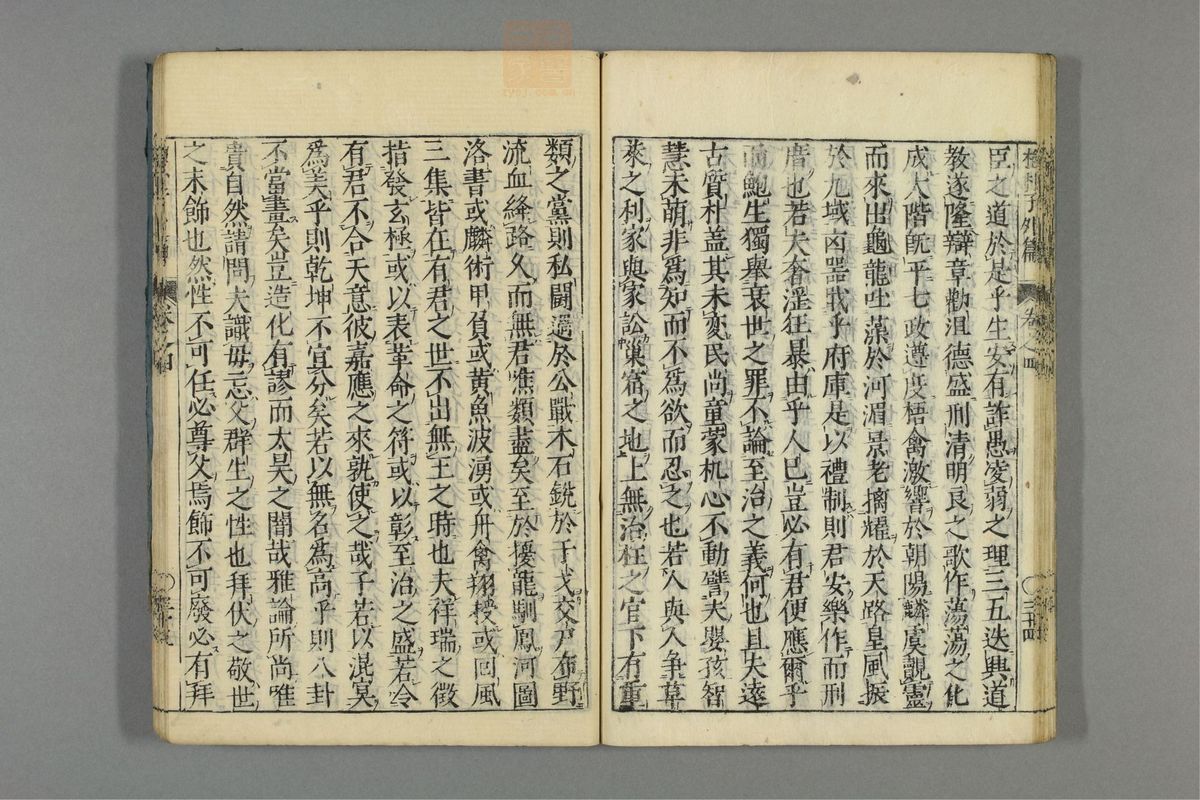 抱朴子外篇 卷之四 ○ 三十四
臣之道於是乎生安有詐愚凌弱之理三五迭興道
教遂隆辯章勸沮德盛刑清明良之歌作蕩蕩之化
成大階旣平七政遵度梧禽激響於朝陽麟虞覿靈
而來出龜龍吐藻於河湄景老摛耀於天路皇風振
於九域凶器戢乎府庫是以禮制則君安樂作而刑
厝也若夫奢淫狂暴由乎人巳豈必有君便應爾乎
而鮑生獨舉衰世之罪不論至治之義何也且夫遠
古質朴盖其未变民尚童蒙机心不動譬夫嬰孩智
慧未萌非爲知而不爲欲而忍之也若人與人爭草
萊之利家與家訟巢窟之地上無治枉之官下有重
類之黨則私鬪過於公戰木石銳於干戈交尸布野
流血絳路久而無君噍類盡矣至於擾龍馴鳳河圖
洛書或麟術甲負或黄魚波湧或丹禽翔授或回風
三集皆在有君之世不出無王之時也夫祥瑞之徵
指發玄極或以表革命之符或以彰至治之盛若令
有君不合天意彼嘉應之來孰使之哉子若以混冥
爲美乎則乾坤不宜分矣若以無名爲高乎則八卦
不當畫矣豈造化有謬而太昊之闇哉雅論所尚唯
貴自然請問夫識毋忘父群生之性也拜伏之敬世
之末飾也然性不可任必尊父焉飾不可廢必有拜